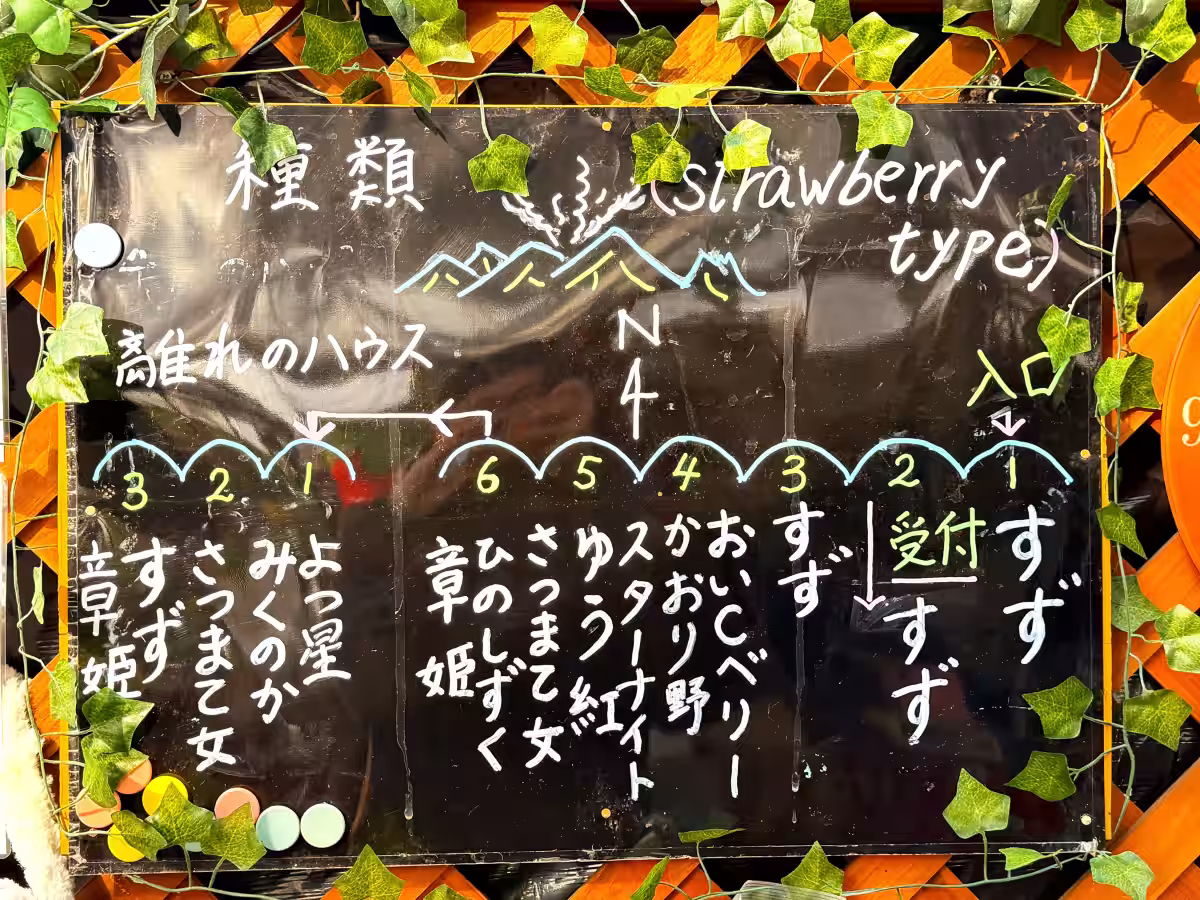 種類
(strawberry
type)
N
4
離れのハウス
入口
3 2 1
6 5 4 3 2 1
受付
すず
すず
すず
おいCベリー
かおり野
スターナイト
ゆう紅
さつまて女
ひのしずく
章姫
よつ星
みくのか
さつまて女
すず
章姫
9